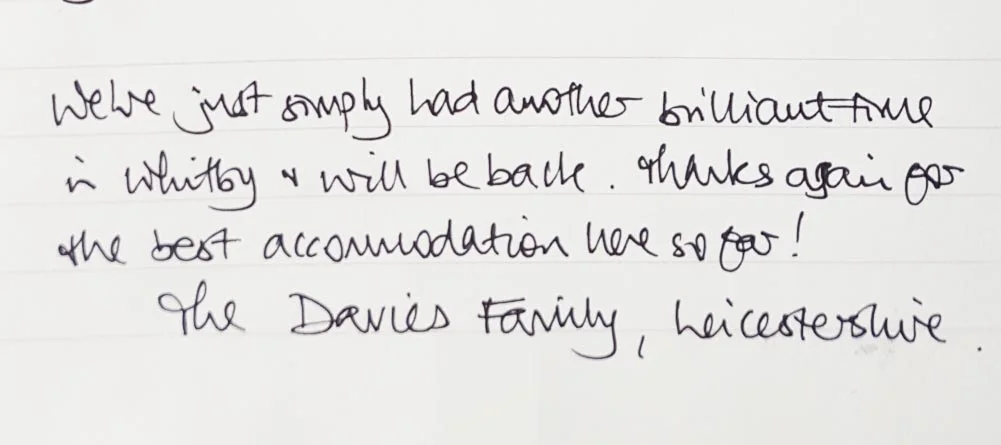 We've just simply had another brilliant time
in Whitby & will be back. Thanks again for
the best accommodation here so far!
The Davies Family, Leicestershire.